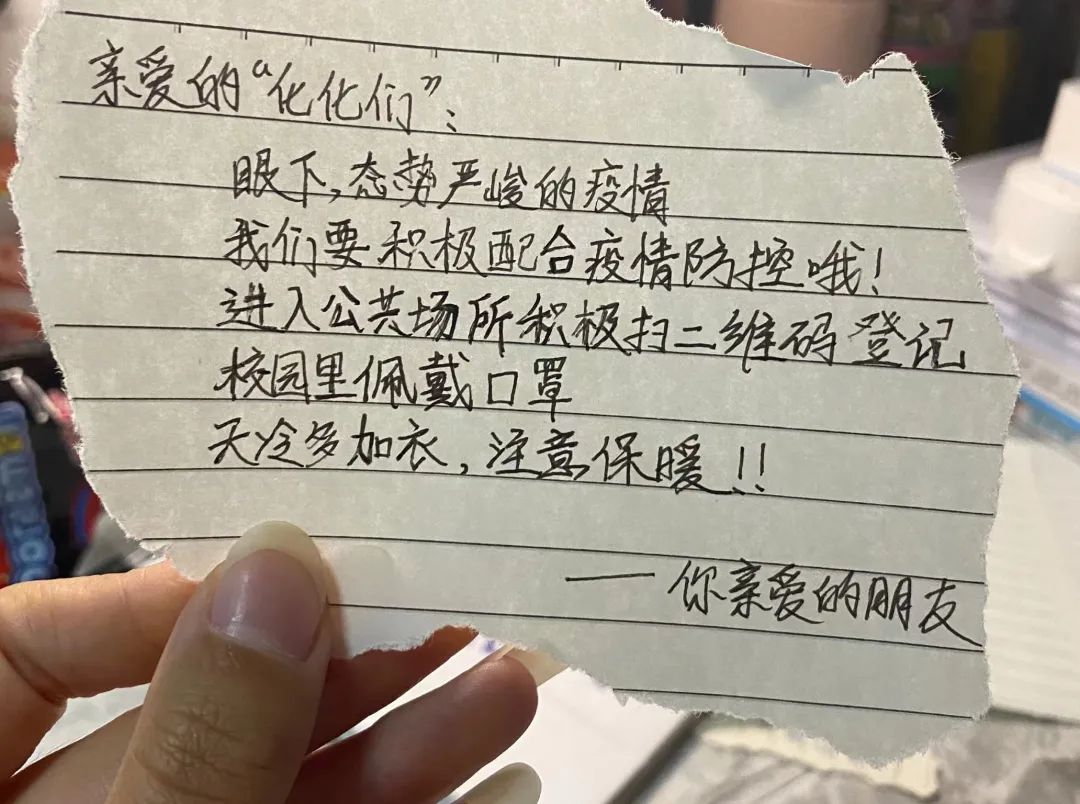 亲爱的“化化们”：
眼下，态势严峻的疫情
我们要积极配合疫情防控哦！
进入公共场所积极扫二维码登记
校园里佩戴口罩
天冷多加衣，注意保暖！！
——你亲爱的朋友